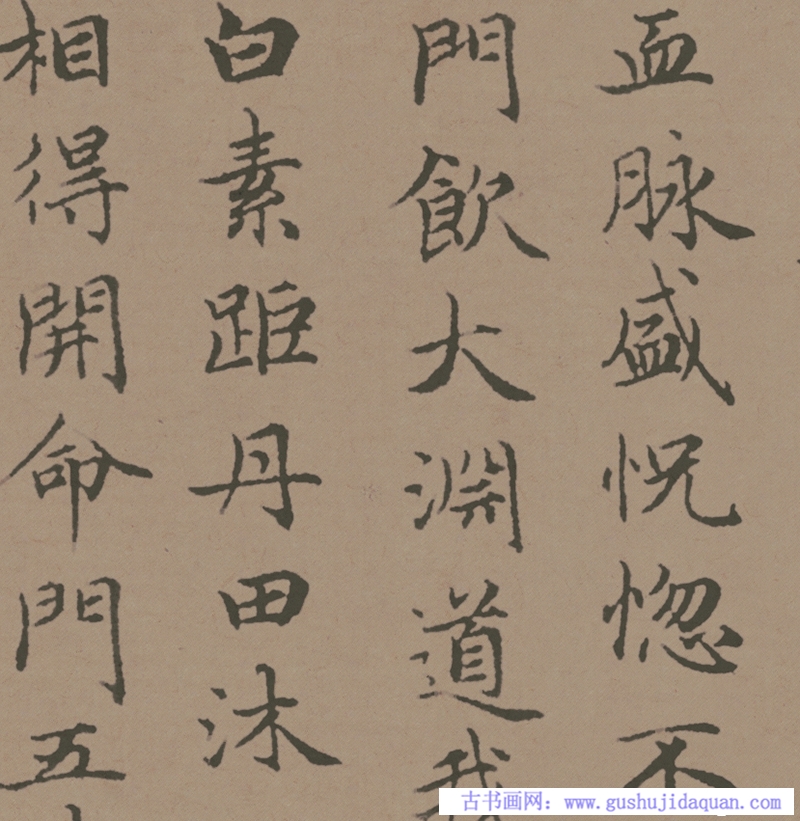 血脉盛怳惚不
門飲大淵道我
白素距丹田沐
相得開命門五
古书画网：www.gushujidaquan.com